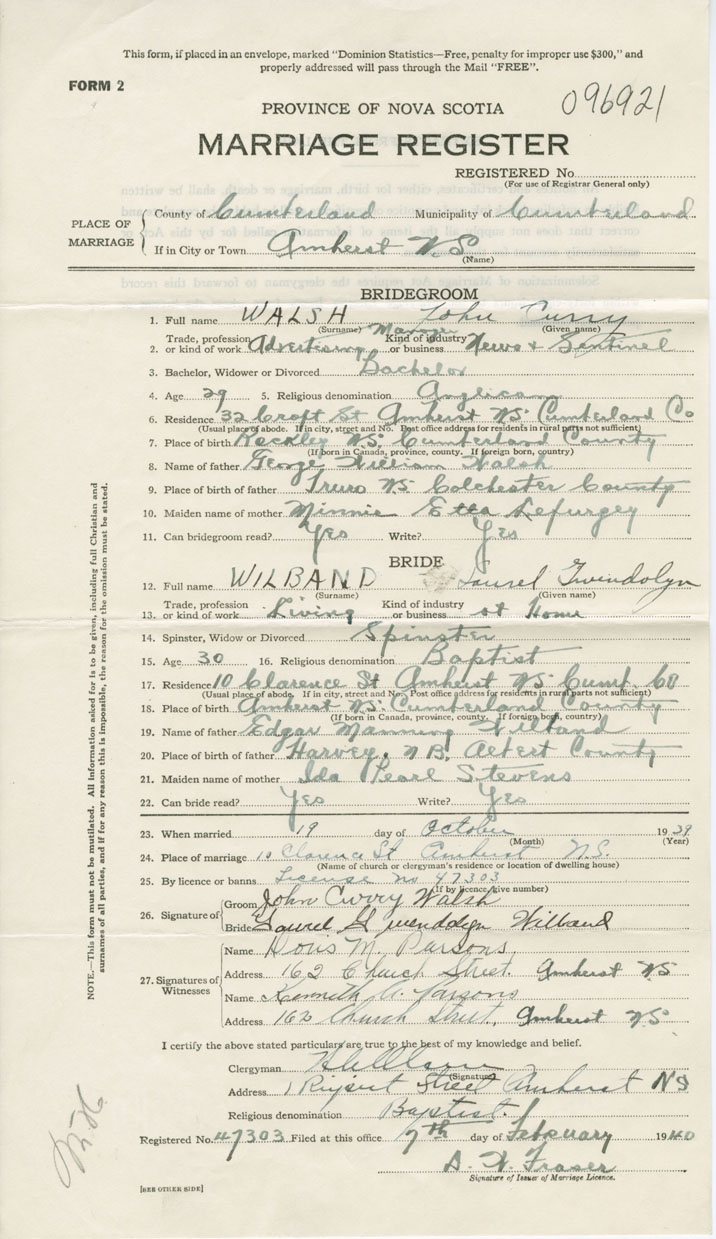 This form, if placed in an envelope, marked "Dominion Statistics—Free, penalty for improper use $300," and
properly addressed will pass through the Mail "FREE".
FORM 2
096921
PROVINCE OF NOVA SCOTIA
MARRIAGE REGISTER
REGISTERED No.
(For use of Registrar General only)
PLACE OF MARRIAGE
County of Cumberland Municipality of Cumberland
If in City or Town Amherst N.S
(Name)
BRIDEGROOM
1. Full name WALSH John Curry
(Surname) (Given name)
Manager
2. Trade, profession or kind of work Advertising Kind of industry or business News & Sentinel
3. Bachelor, Widower or Divorced Bachelor
4. Age 29 5. Religious denomination Anglican
6. Residence 32 Croft St Amherst NS. Cumberland Co
(Usual place of abode. If in city, street and No. Post office address for residents in rural parts not sufficient)
7. Place of birth Rockley NS. Cumberland County
(If born in Canada, province, county. If foreign born, country)
8. Name of father George William Walsh
9. Place of birth of father Truro NS Colchester County
10. Maiden name of mother Minnie Etta Lefurgey
11. Can bridegroom read? Yes Write? Yes
BRIDE
12. Full name WILBAND Laurel Gwendolyn
(Surname) (Given name)
13. Trade, profession or kind of work Living Kind of industry or business at Home
14. Spinster, Widow or Divorced Spinster
15. Age 30 16. Religious denomination Baptist
17. Residence 10 Clarence St Amherst NS. Cumb. Co
(Usual place of abode. If in city, street and No. Post office address for residents in rural parts not sufficient)
18. Place of birth Amherst NS. Cumberland County
(If born in Canada, province, county. If foreign born, country)
19. Name of father Edgar Manning Wilband
20. Place of birth of father Harvey, N B. Albert County
21. Maiden name of mother Ida Pearl Stevens
22. Can bride read? Yes Write? Yes
23. When married 19 day of October 1939
(Month) (Year)
24. Place of marriage 10 Clarence St Amherst N.S.
(Name of church or clergyman's residence or location of dwelling house)
25. By licence or banns License no 47303
(If by licence, give number)
26. Signature of Groom John Curry Walsh
Bride Laurel Gwendolyn Wilband
27. Signatures of Witnesses
Name Doris M. Parsons
Address 162 Church Street. Amherst NS
Name Kenneth A. Parsons
Address 162 Church Street, Amherst NS
I certify the above stated particulars are true to the best of my knowledge and belief.
Clergyman
(Signature)
Address Street Amherst NS
Religious denomination Baptist.
Registered No. 47303 Filed at this office 7th day of February 1940
A. W. Fraser
Signature of Issuer of Marriage Licence.
[SEE OTHER SIDE]
NOTE.—This form must not be mutilated. All information asked for is to be given, including full Christian and
surnames of all parties, and if for any reason this is impossible, the reason for the omission must be stated.